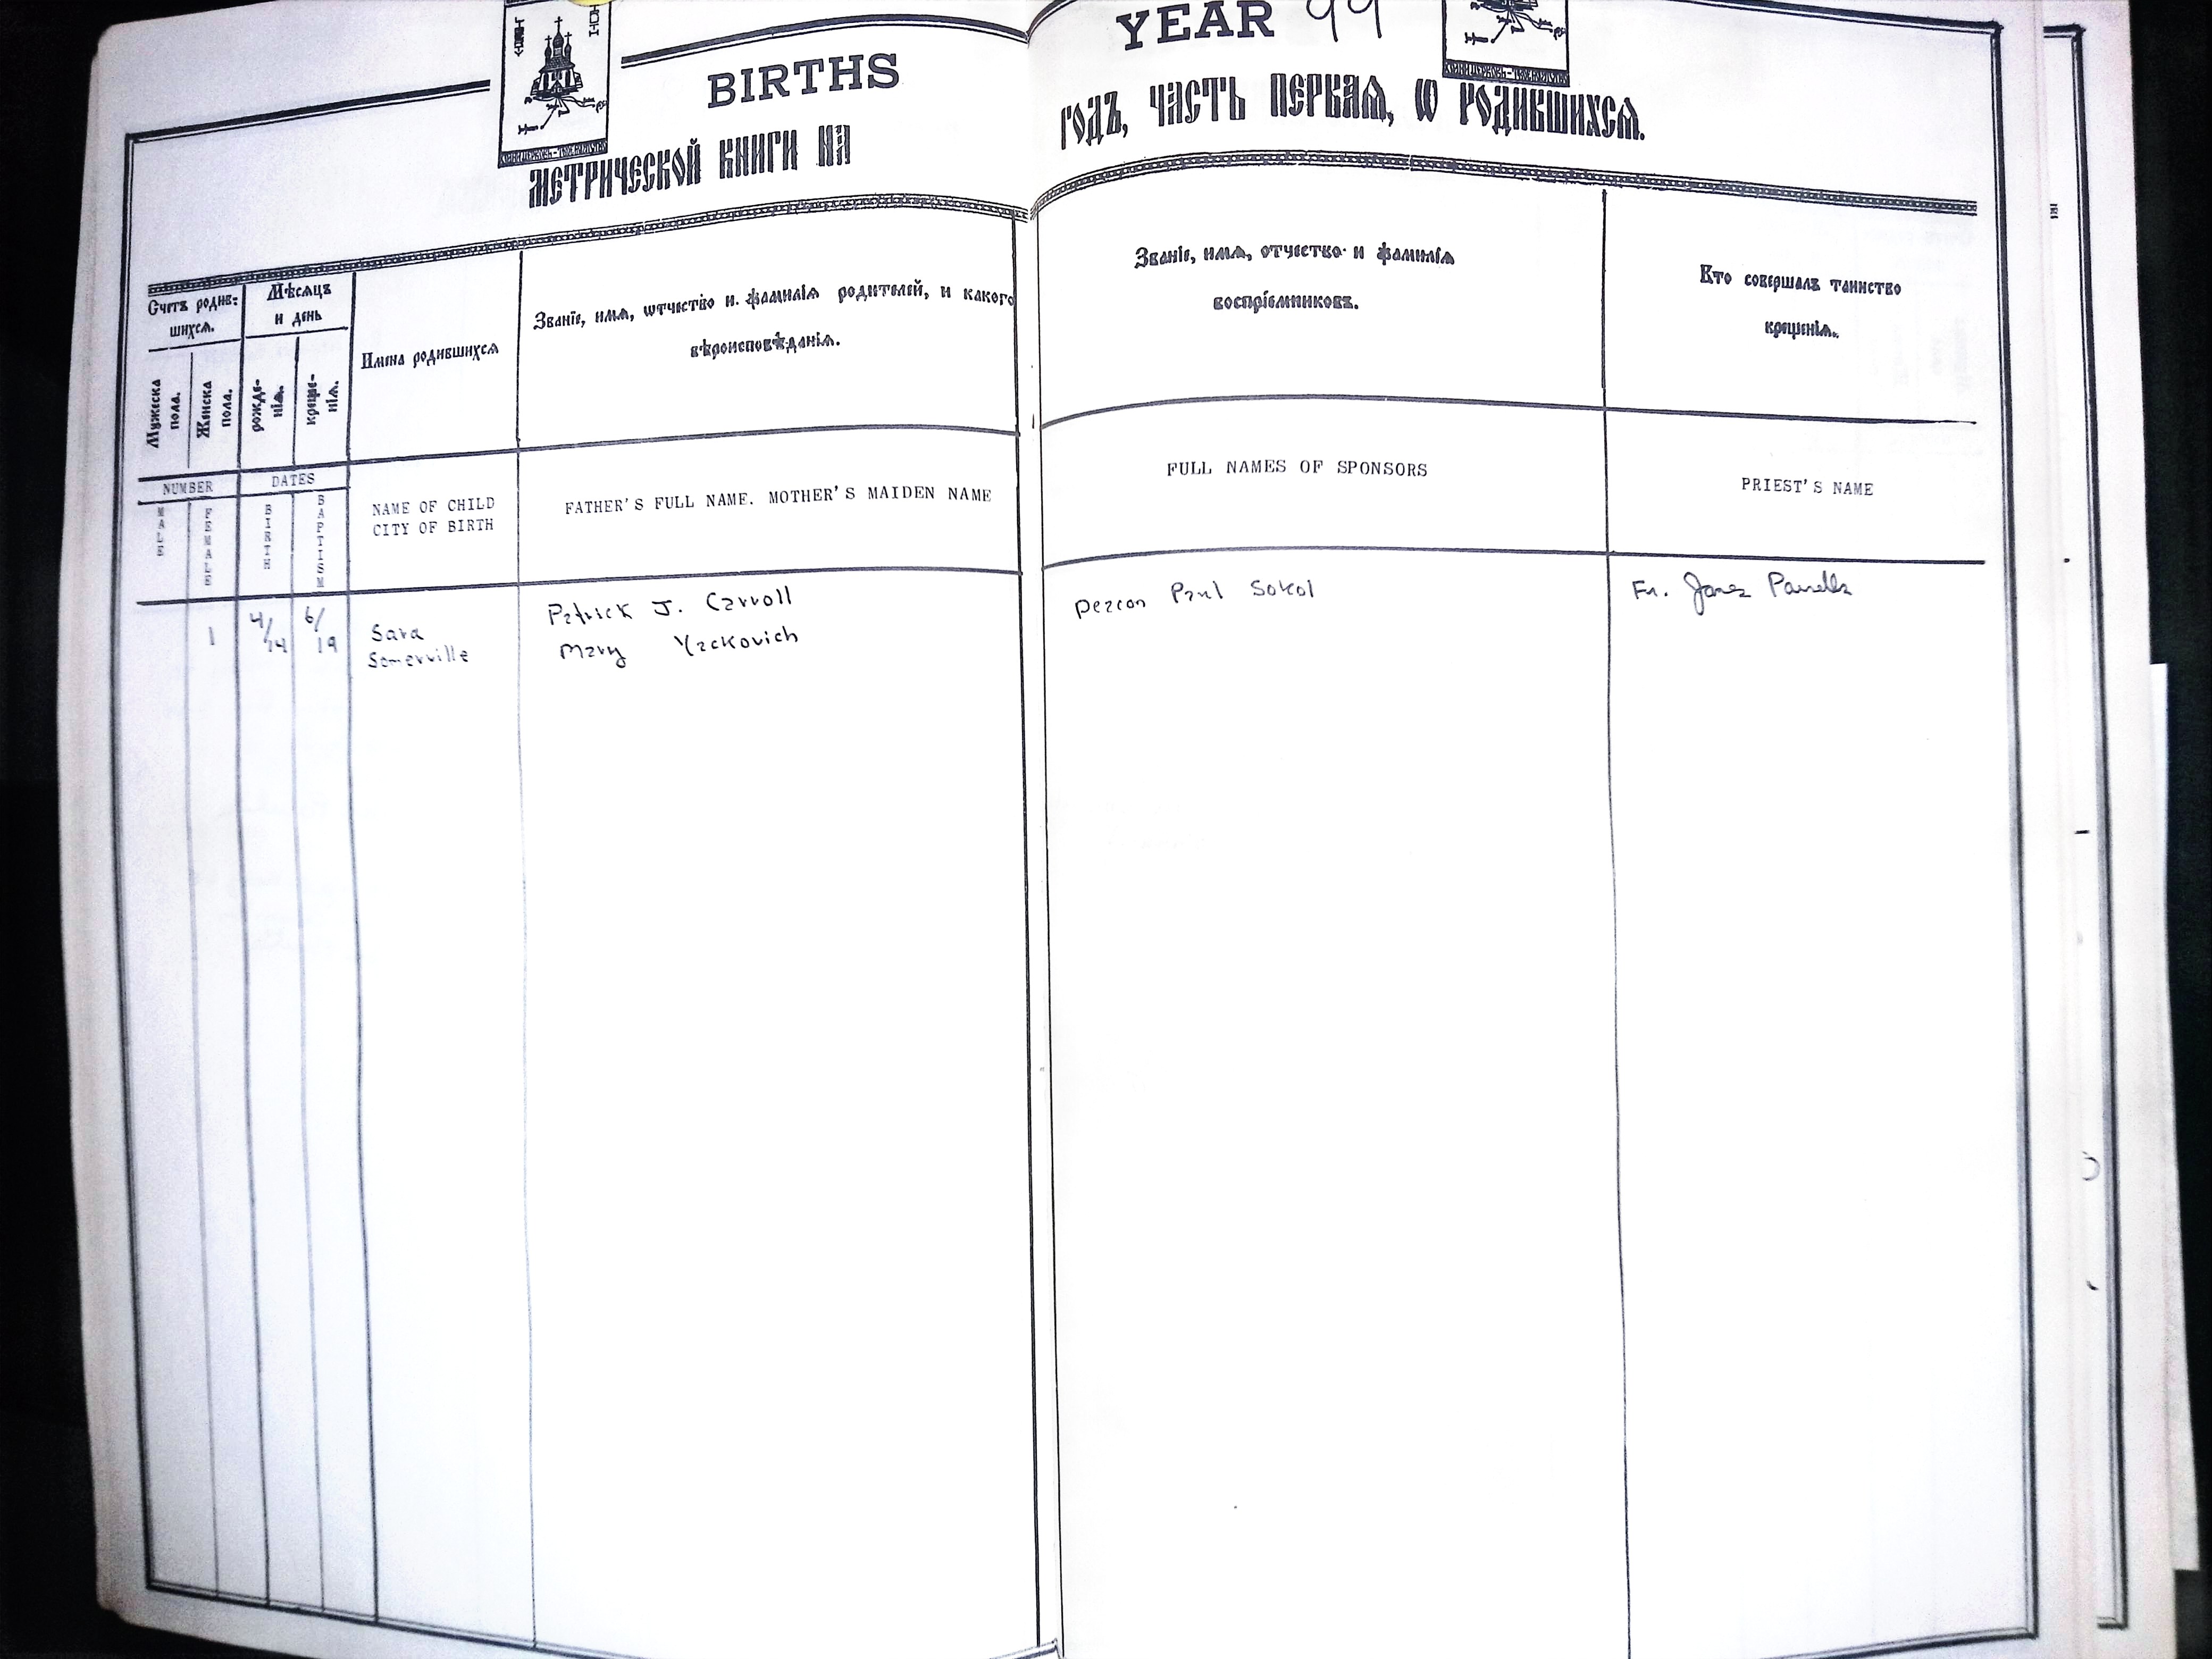 BIRTHS
YEAR 99
МЕТРИЧЕСКОЙ КНИГИ НА
ГОДЪ, ЧАСТЬ ПЕРВАѦ, Ѡ РОДИВШИХСѦ.
Счетъ родив-
шихсѧ.
Мѣсѧцъ
и день
Мужеска
пола.
Женска
пола.
рожде-
нїѧ.
креще-
нїѧ.
Имена родившихсѧ
Званїе, имѧ, ѡтчество и фамилїѧ родителей, и какого
вѣроисповѣданїѧ.
Званїе, имѧ, отчество и фамилїѧ
воспрїемниковъ.
Кто совершалъ таинство
крещенїѧ.
NUMBER
DATES
MALE
FEMALE
BIRTH
BAPTISM
NAME OF CHILD
CITY OF BIRTH
FATHER'S FULL NAME. MOTHER'S MAIDEN NAME
FULL NAMES OF SPONSORS
PRIEST'S NAME
1
4/14
6/19
Sara
Somerville
Patrick J. Carroll
Mary Yackovich
Deacon Paul Sokol
Fr. James